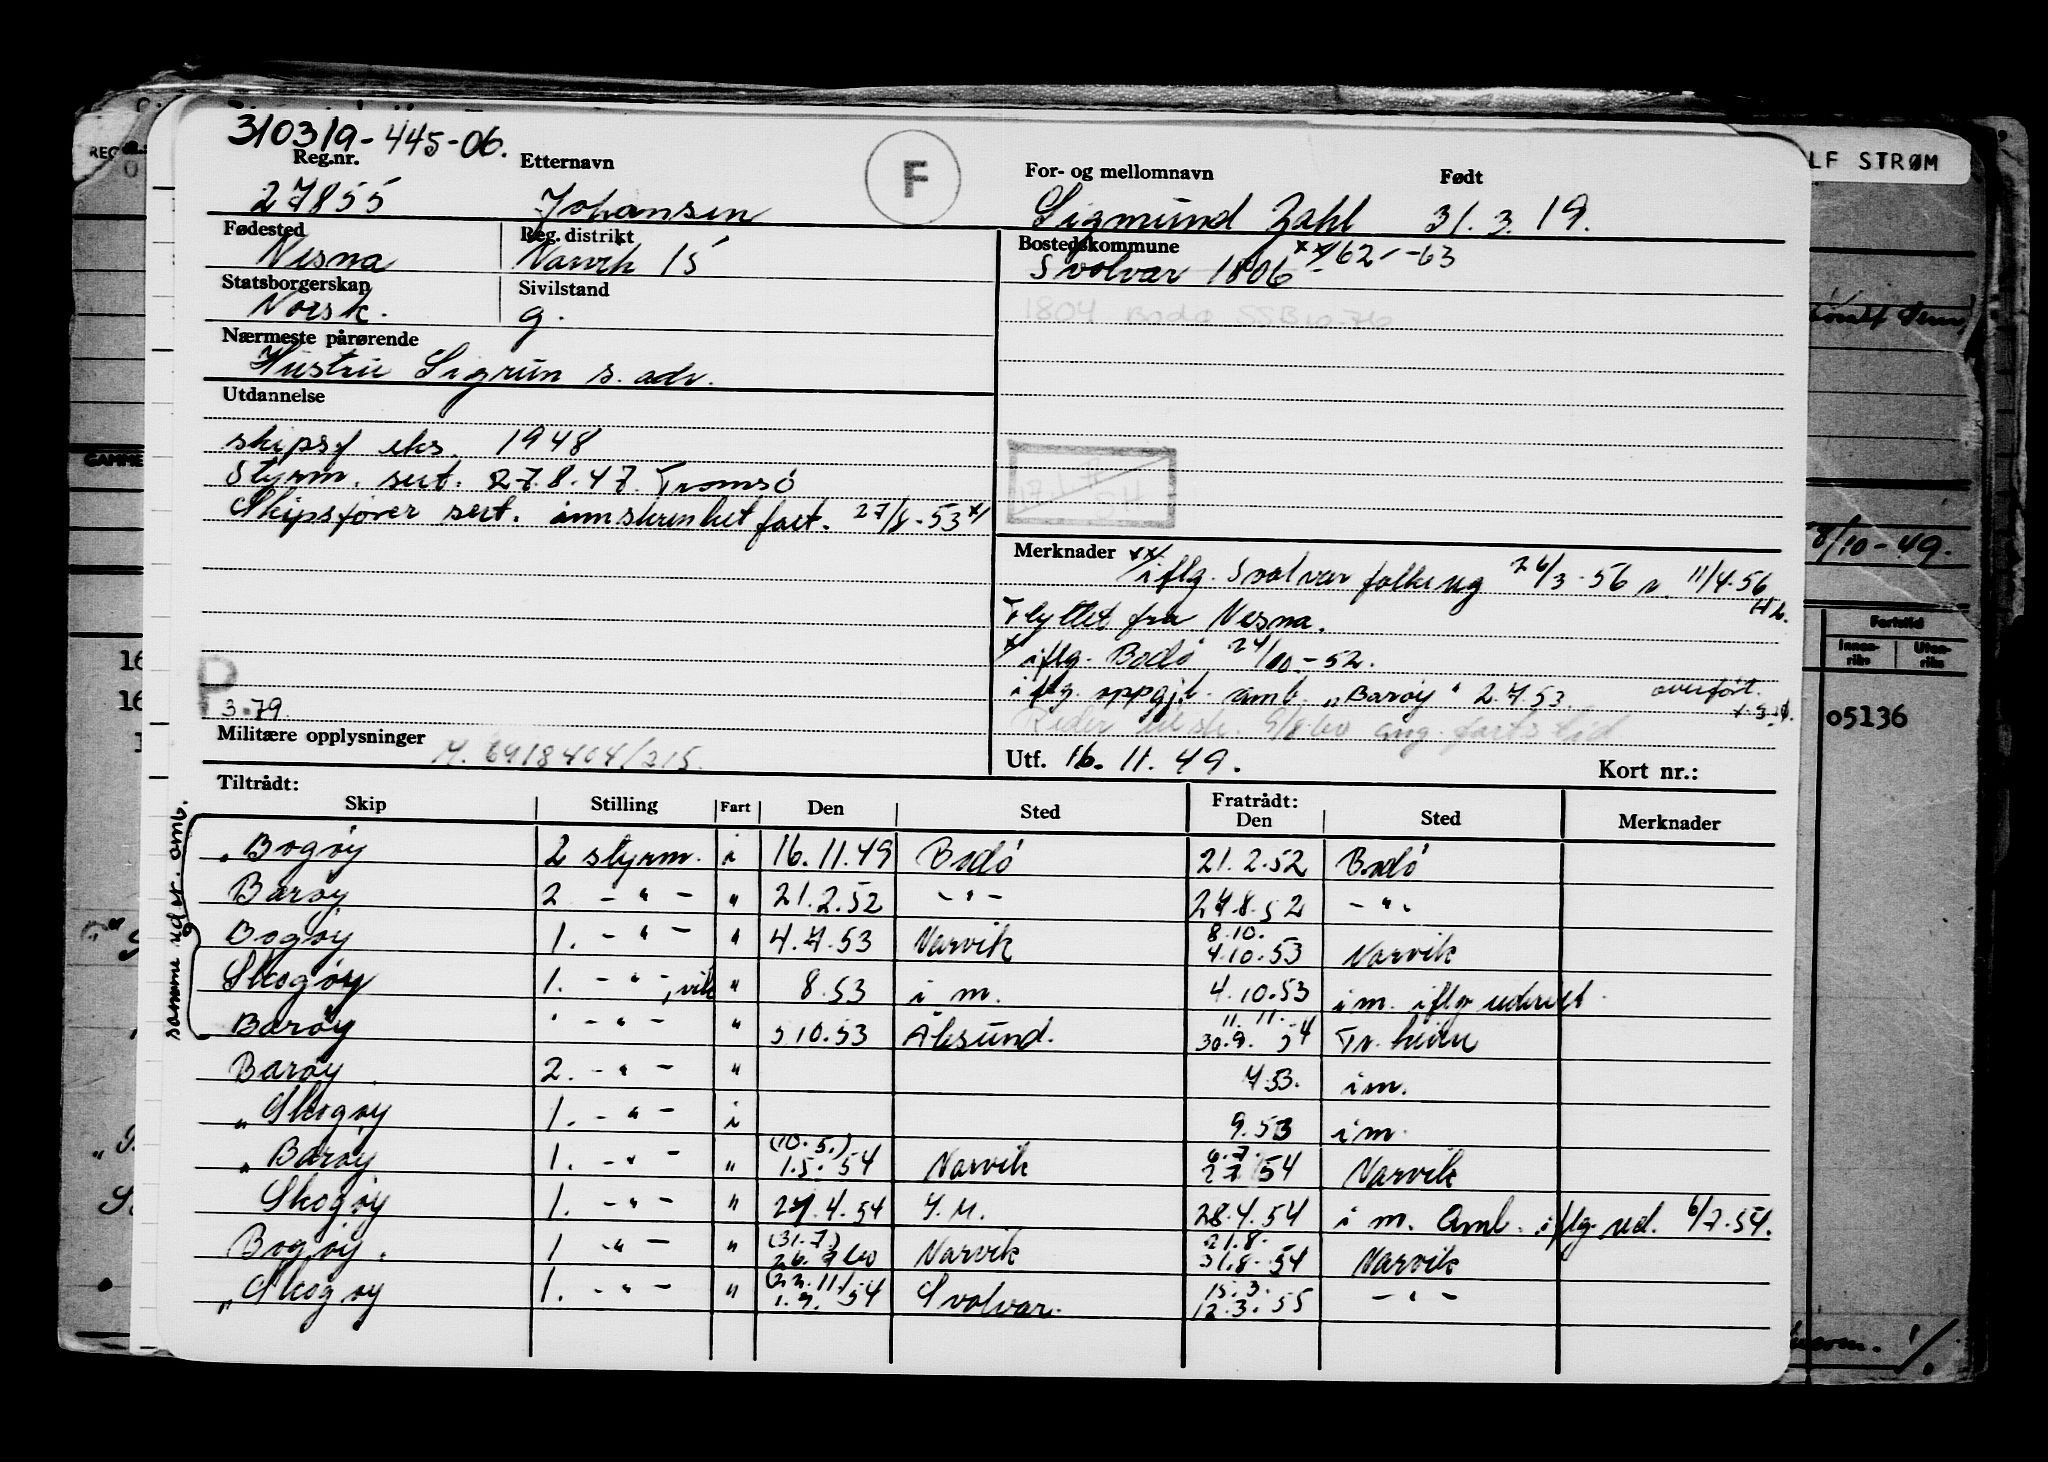 310319-445-06.
Reg.nr. Etternavn F For- og mellomnavn Født
27855 Johansen Sigmund Zahl 31.3.19.
Fødested Reg. distrikt Bostedskommune
Nesna Narvik 15 Svolvær 1806 xx/ 62 - 63
Statsborgerskap Sivilstand
Norsk. g. 1804 Bodø SSB 10-76
Nærmeste pårørende
Hustru Sigrun s. adr.
Utdannelse
skipsf eks. 1948
Styrm. sert. 27.8.47. Tromsø
Skipsfører sert. innskrenket fart. 27/8-53 x/
Merknader xx/ iflg. Svolvær folkereg 26/3-56 11/4-56
Flyttet fra Nesna.
x/ iflg. Bodø 24/10-52.
iflg. oppgjb. amb. „Barøy" 2.7.53. overført.
P 3.79.
Militære opplysninger
Utf. 16.11.49. Kort nr.:
Tiltrådt: Fratrådt:
Skip Stilling Fart Den Sted Den Sted Merknader
samme reder. amb.
Bogøy 2 styrm. i 16.11.49 Bodø 21.2.52 Bodø
Barøy 2 - " - " 21.2.52 - " - 24.8.52 - " -
Bogøy 1. - " - " 4.7.53 Narvik 8.10. 4.10.53 Narvik
Skogøy 1. - " -, vik " 8.53 i m. 4.10.53 i m. iflg rederiet.
Barøy " - " - " 5.10.53 Ålesund. 11.11. 30.9.54 Tr. heim
Barøy 2. - " - " 7.53. i m.
„Skogøy 1. - " - i 9.53 i m.
„Barøy 1. - " - " (10.5.) 1.5.54 Narvik 6.7. 2.7.54 Narvik
Skogøy 1. - " - " 27.4.54 I.M. 28.4.54 i m. Aml. iflg. red. 6/7.54.
Bogøy. 1 - " - " (31.7.) Narvik 21.8. 31.8.54 Narvik
„Skogøy 1. - " - " (22.11.) 1.9.54 Svolvær. 15.3. 12.3.55 - " -
LF STRØM
8/10-49.
Fartstid
Innenriks Utenriks
05136